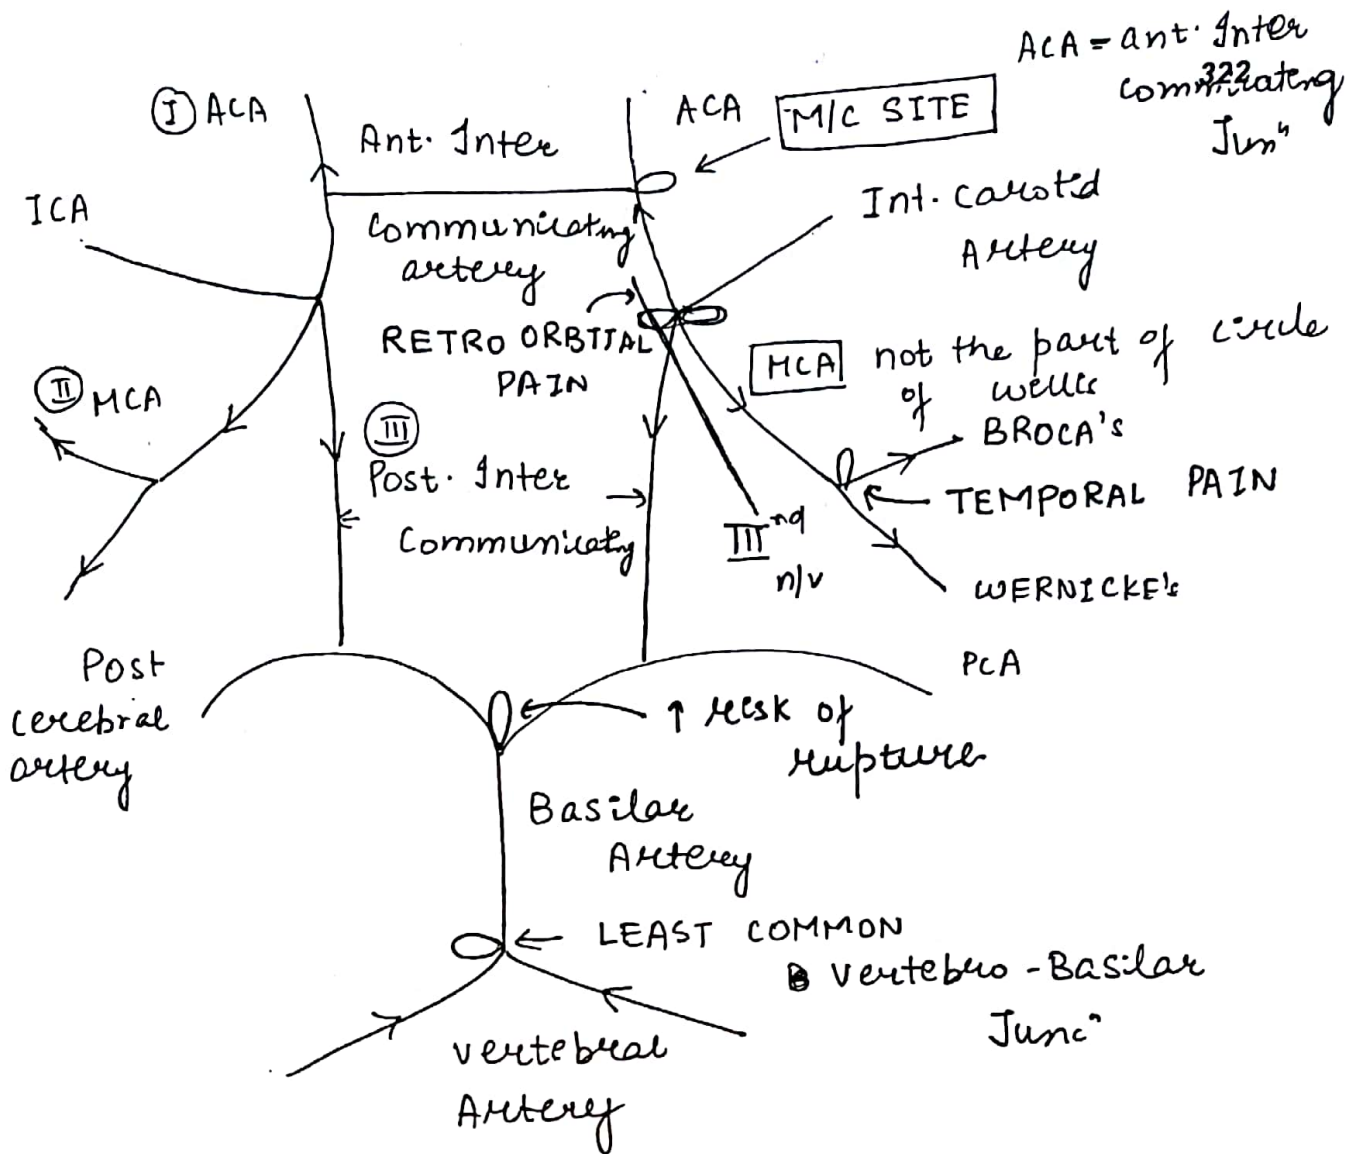 ACA = ant. Inter
communicating
322
Junⁿ
Ⓘ ACA
Ant. Inter
Communicating
artery
ACA
M/C SITE
ICA
Int. Carotid
Artery
RETRO ORBITAL
PAIN
MCA not the part of circle
of willis
Ⓘ︎Ⓘ MCA
III
Post. Inter
Communicatng
BROCA's
TEMPORAL PAIN
III nd
n/v
WERNICKE's
Post
cerebral
artery
PCA
↑ risk of
rupture
Basilar
Artery
← LEAST COMMON
Vertebro - Basilar
Juncⁿ
vertebral
Artery